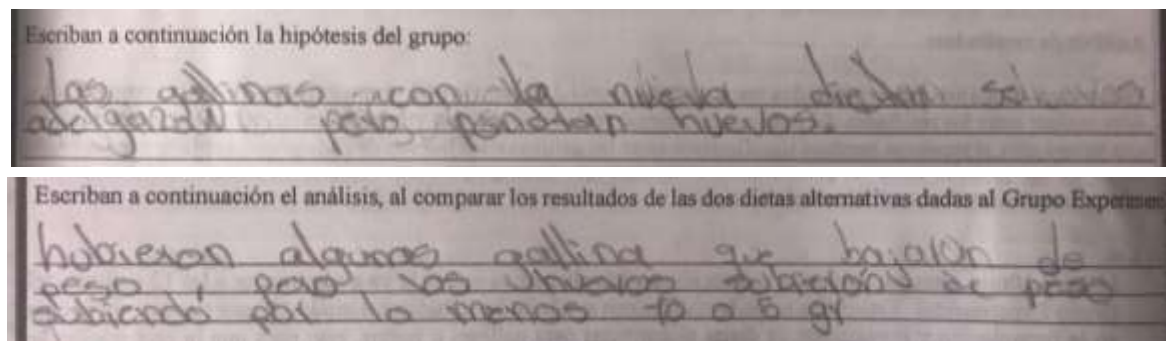 Escriban a continuación la hipótesis del grupo:
Las gallinas con la nueva dieta se
adelgazan pero pondran huevos.
Escriban a continuación el análisis, al comparar los resultados de las dos dietas alternativas dadas al Grupo Experimen
hubieron algunas gallina que bajaron de
peso, pero los huevos subieron de peso
subiendo por lo menos 10 o 5 gr